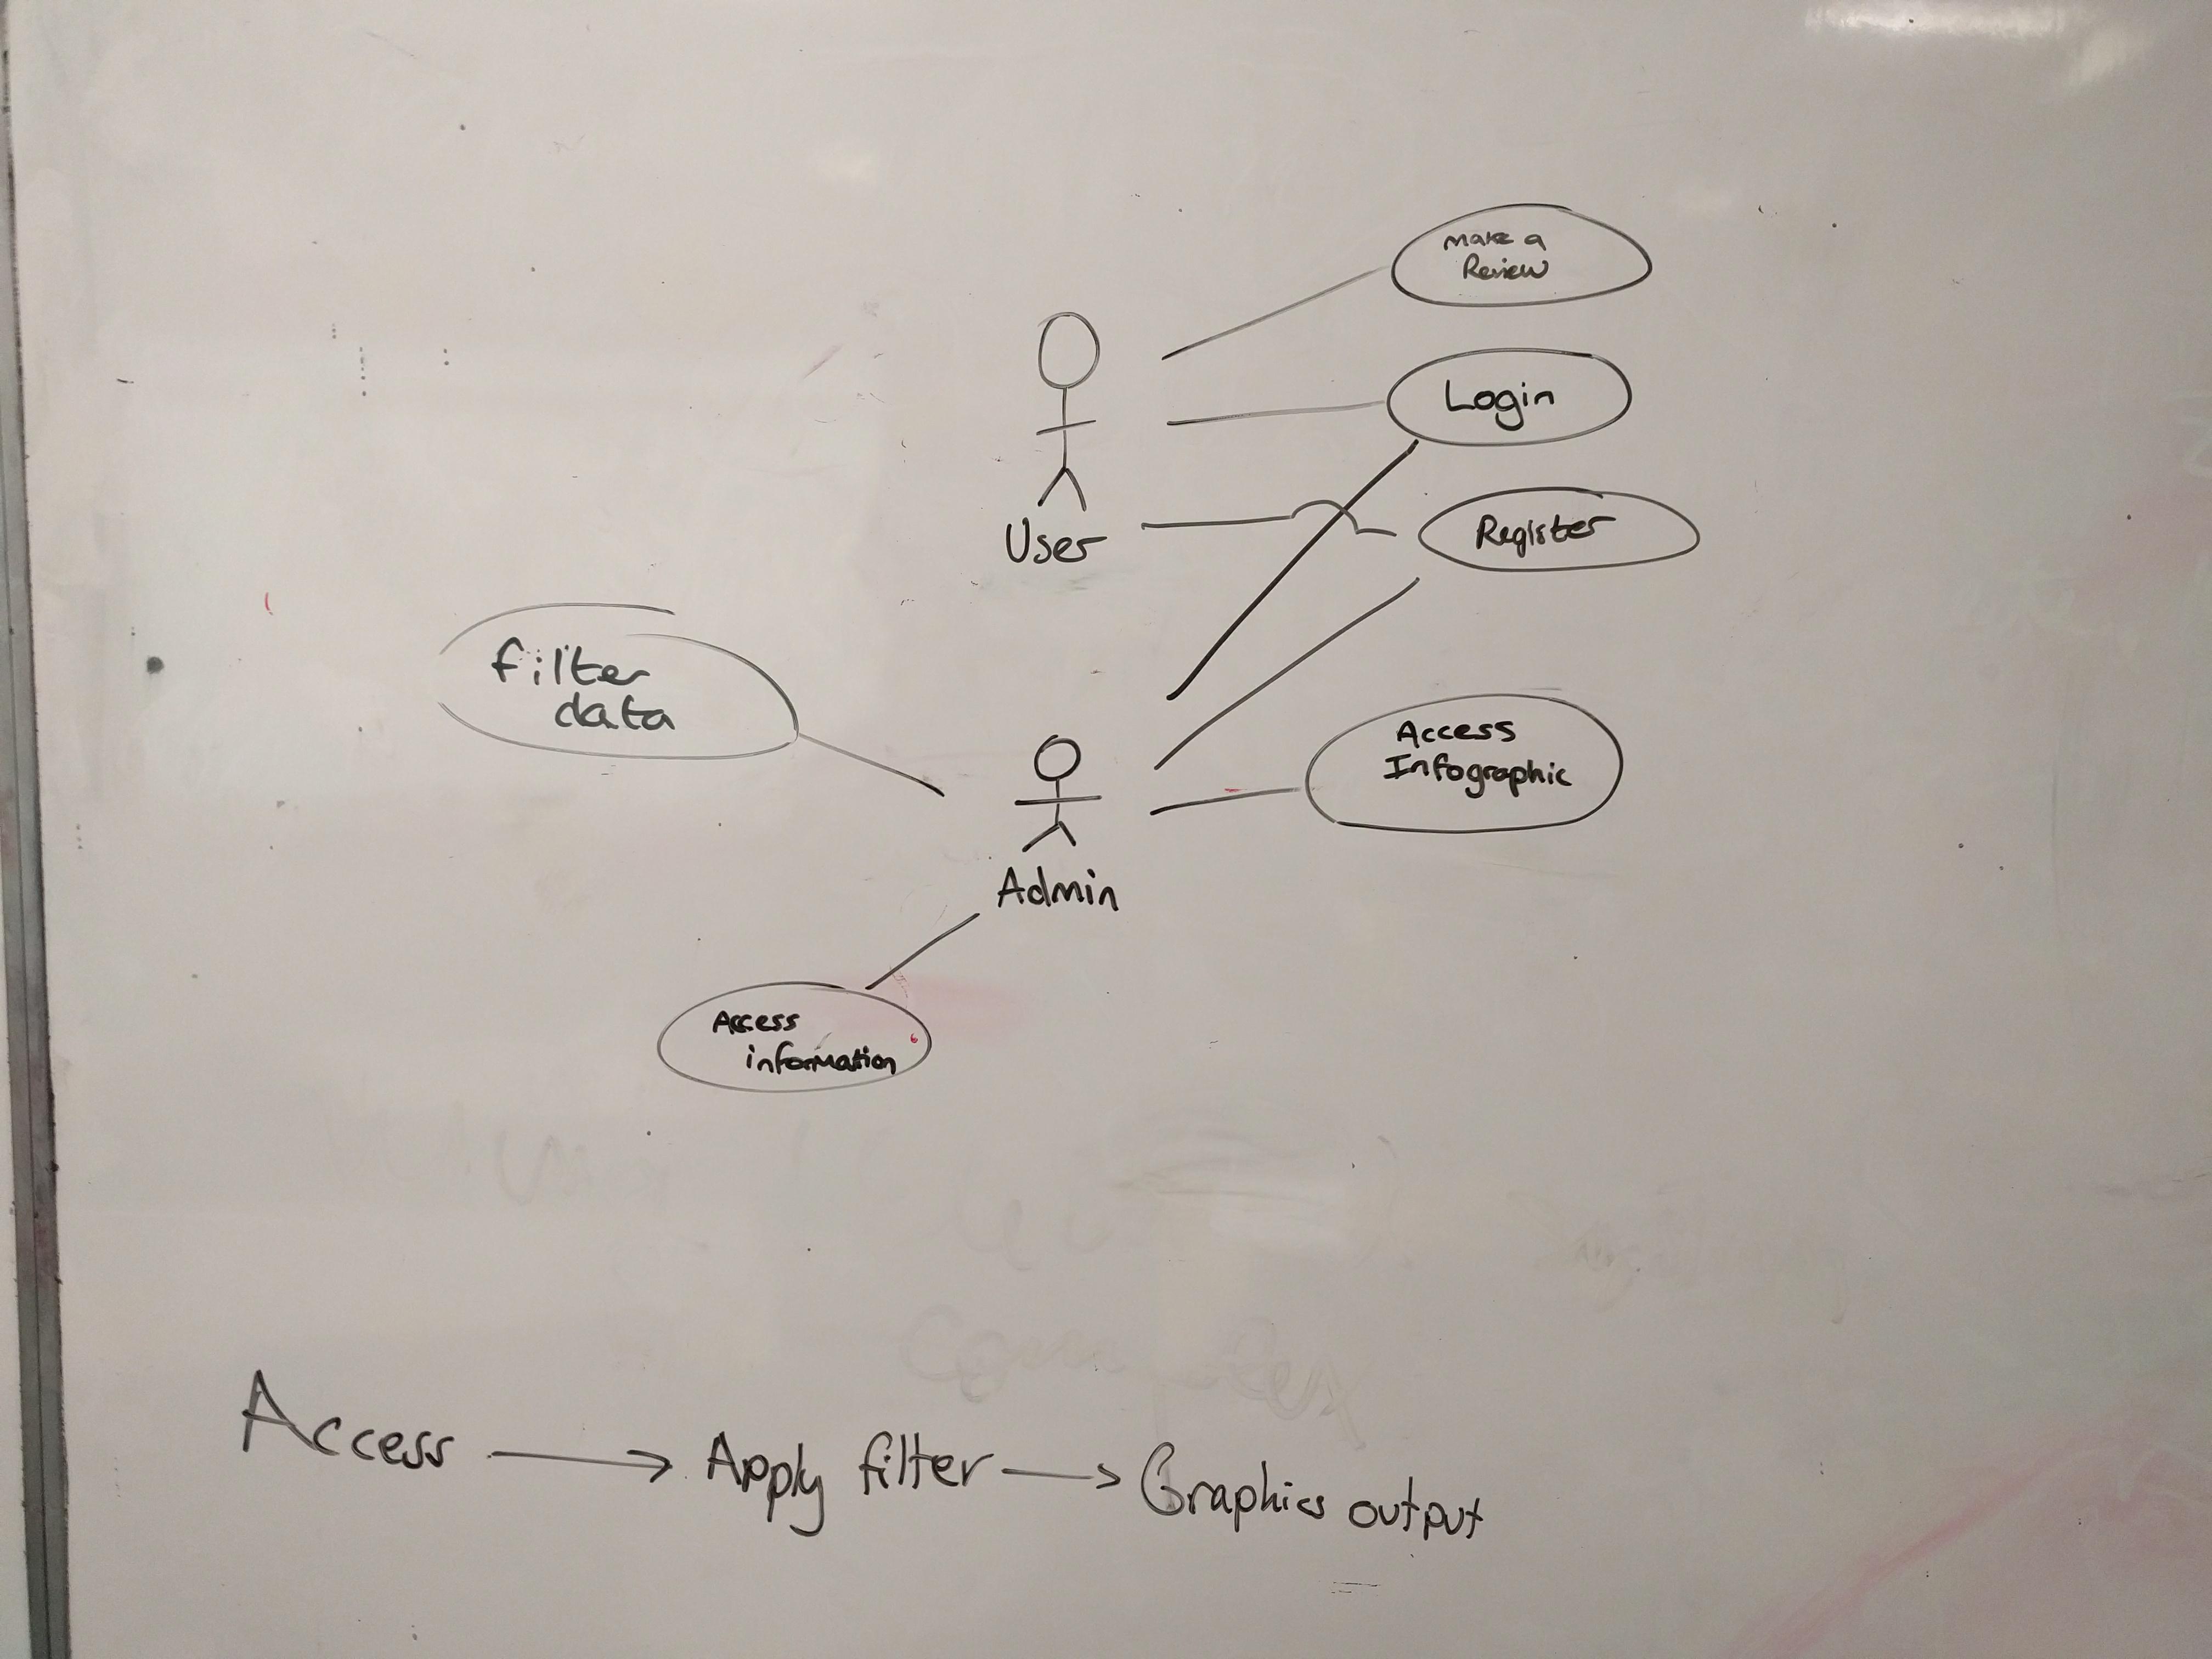 Make a
Review
Login
Register
User
filter
data
Access
Infographic
Admin
Access
information
Access → Apply filter → Graphics output